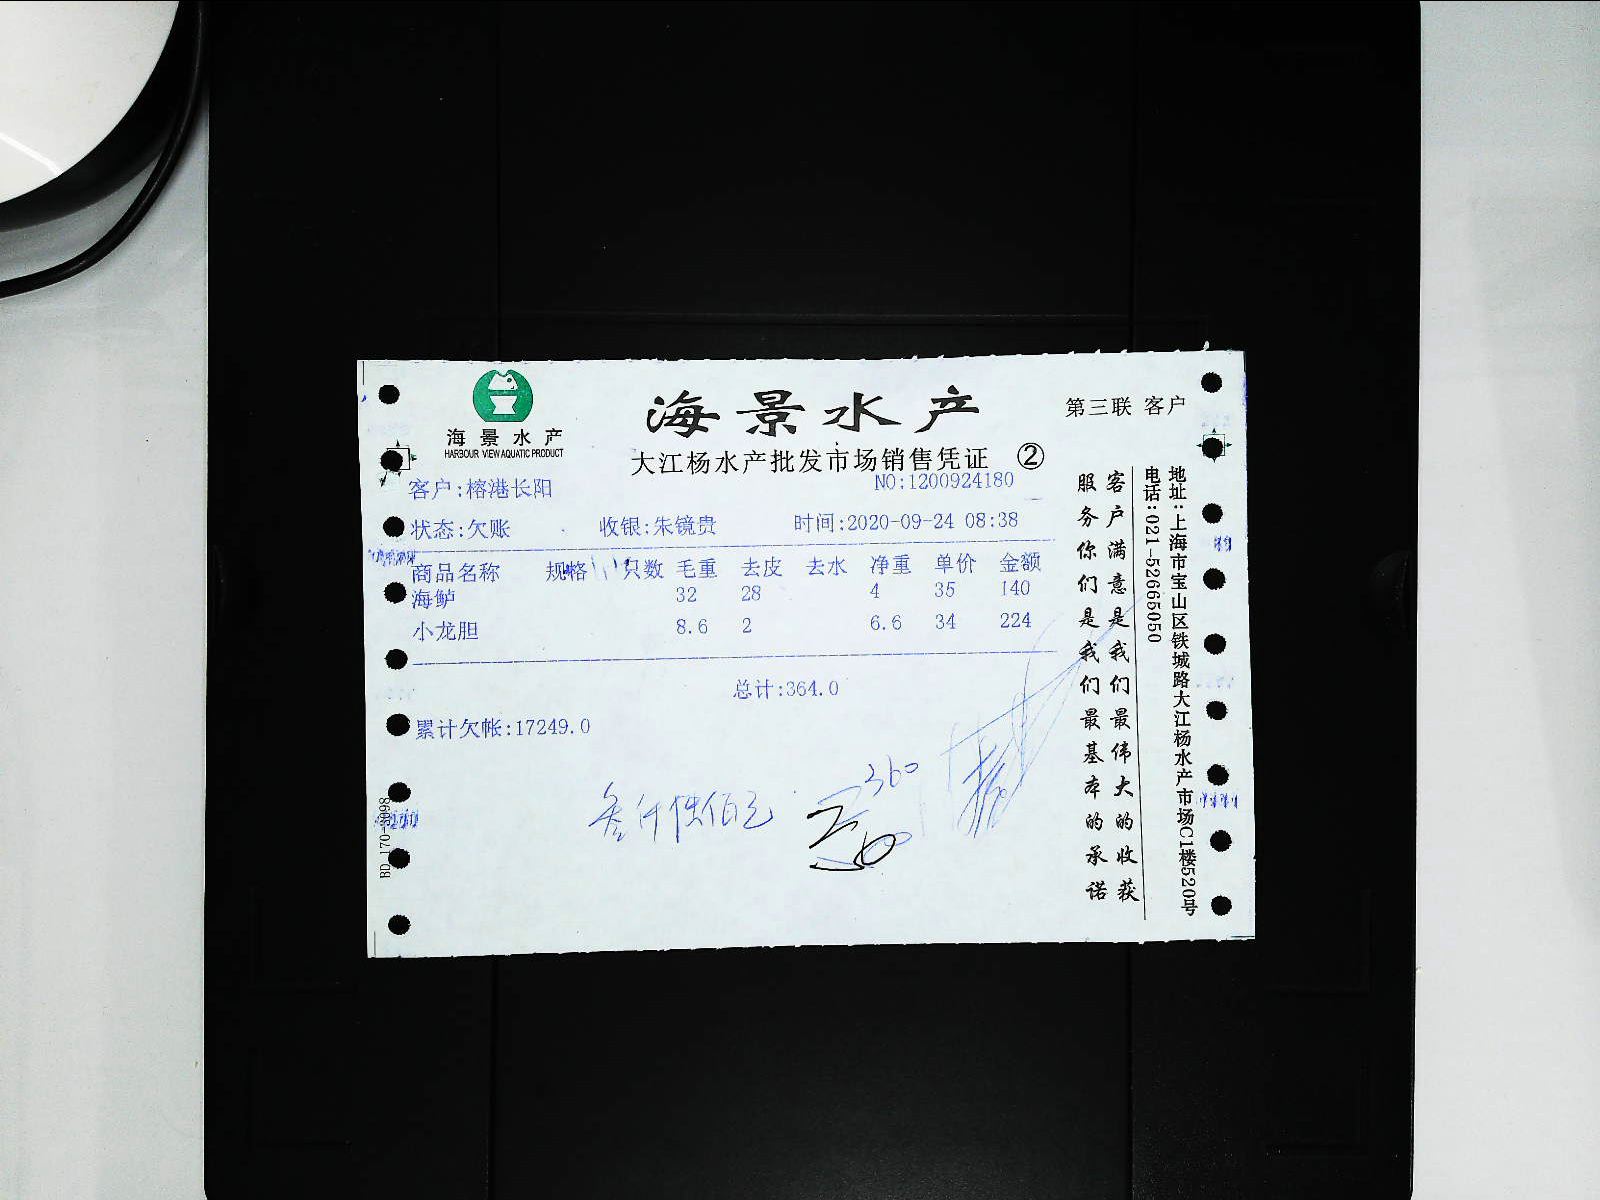 海景水产
HARBOUR VIEW AQUATIC PRODUCT
海景水产
第三联 客户
大江杨水产批发市场销售凭证 ②
客户:榕港长阳 NO:1200924180
状态:欠账 收银:朱镜贵 时间:2020-09-24 08:38
商品名称 规格 只数 毛重 去皮 去水 净重 单价 金额
海鲈 32 28 4 35 140
小龙胆 8.6 2 6.6 34 224
总计:364.0
累计欠帐:17249.0
360
客户满意是我们最伟大的收获
服务你们是我们最基本的承诺
地址:上海市宝山区铁城路大江杨水产市场C1楼520号
电话:021-52665050